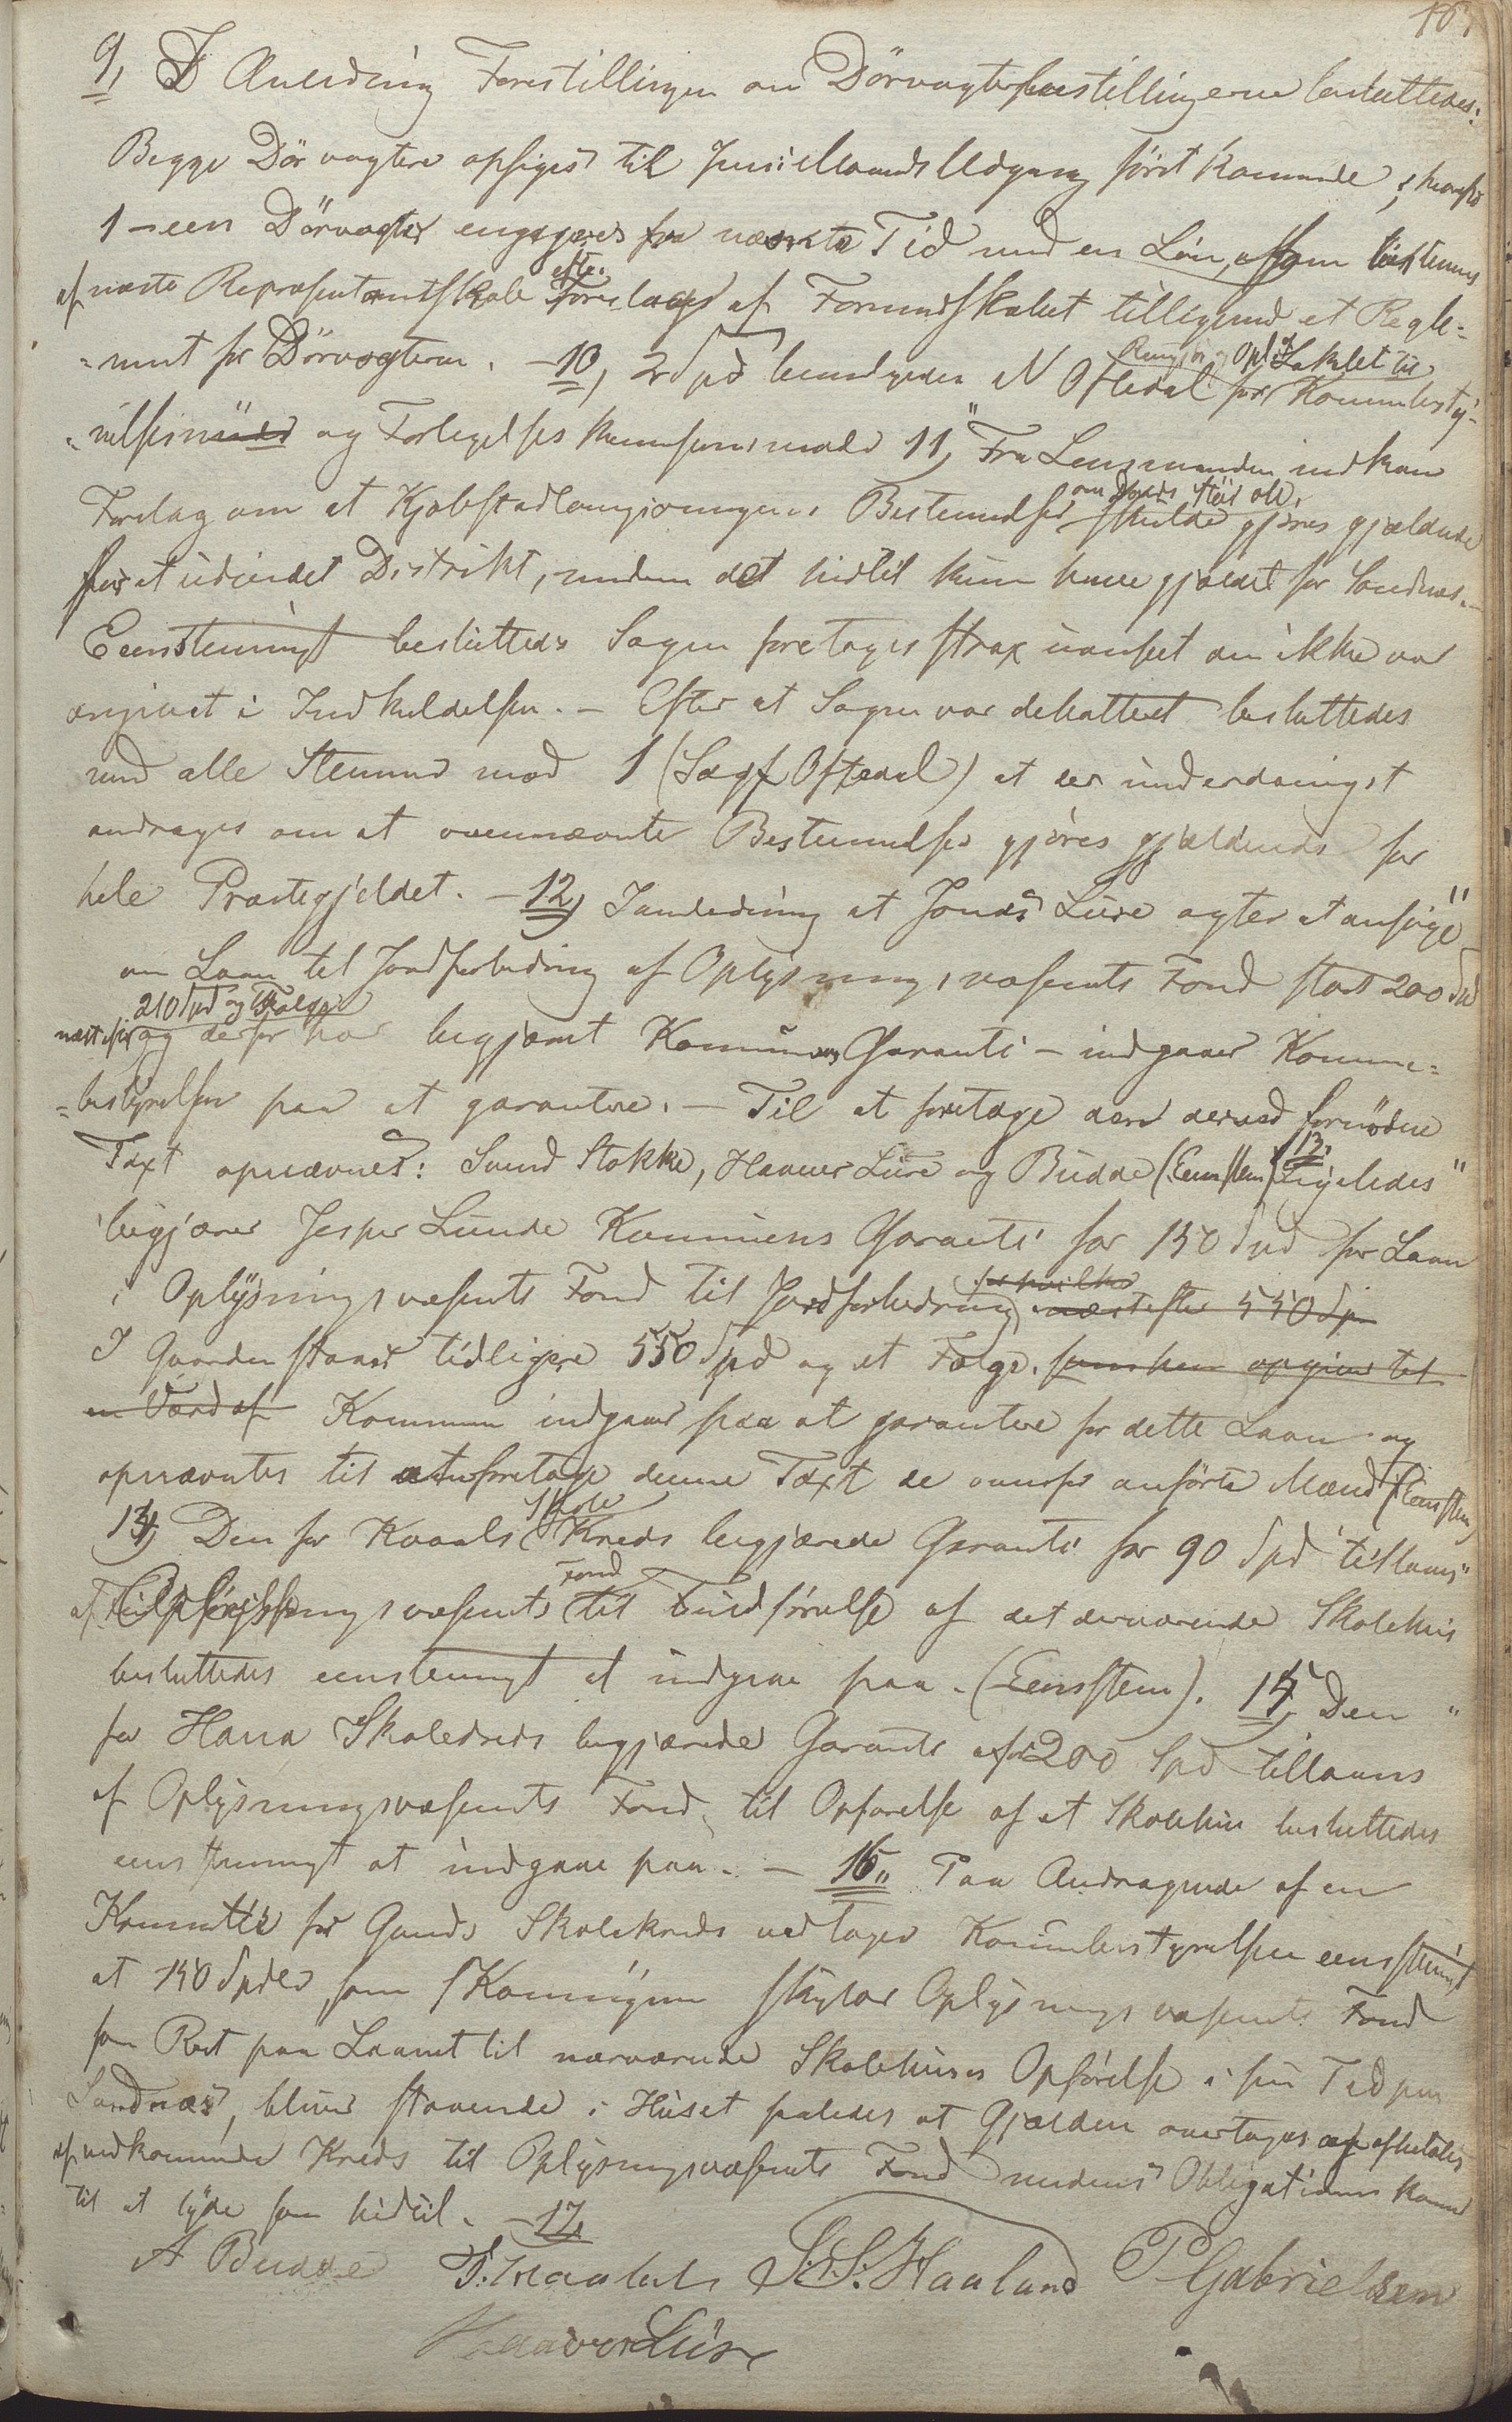 9, I Anledning Forestillingen om Dörvagterbestillingerne besluttedes:
Begge Dörvagtere opsiges til Juni Maaneds Udgang först kommende,
1 - een Dörvagter engageres fra næste Tid med en Lön, som bestemmes
af næste Repræsentantskab efter Forslag af Formandskabet tilligemed et Regle-
-ment for Dörvagteren. - 10, 2 Spd bevilgedes N Oftedal for Lokalet til Kommbesty-
-relsesmöder og Forligelses Kommissionsmøde 11, Fra Lensmanden indkom
Forslag om at Kjøbstadlovgivningens Bestemmelse skulde gjøres gjældende
for et udvidet Distrikt, medens det hidtil kun have gjældet for Sandnes. -
Eenstemmigt besluttedes Sagen foretages strax uanseet om ikke var
angivet i Indkaldelsen. - Efter at Sagen var debatteret besluttedes
med alle Stemmer mod 1 (Sagf Oftedal) at der underdanigst
andrages om at ovennævnte Bestemmelse gjöres gjældende for
hele Præstegjeldet. - 12, I anledning at Jonas Lure agter at ansöge
om Laan til Jordforbedring af Oplysningsvæsenets Fond stort 200 Spd
næst efter 210 Spd og Folge og derfor har begjæret Kommunens Garanti - indgaaer Komme-
-bestyrelsen paa at garantere. - Til at foretage den derved fornödne
Taxt opnævnes: Svend Stokke, Haaver Lure og Budde (Eenstem) 13, Ligeledes
begjærer Jesper Lunde Kommunens Garanti for 150 Spd for Laan
i Oplysningsvæsenets Fond til Jordforbedring for hvilke næst efter 550 Spd
I Gaarden staaer tidligere 550 Spd og et Folge. som han opgiver til
en Værd af Kommunen indgaaer paa at garantere for dette Laan og
opnævntes til at foretage denne Taxt de ovenfor anförte Mænd (Eenstem)
14, Den for Kvaals Skole Kreds begjærede Garanti for 90 Spd tillaans
af Oplysningsvæsenets Fond til Fuldförelse af det derværende Skolehus
besluttedes eenstemmigt at indgaae paa. (Eenstem). 15, Den
for Hana Skolekreds begjærede Garanti for 200 Spd tillaans
af Oplysningsvæsenets Fond til Opförelse af et Skolehus besluttedes
eenstemmigt at indgaae paa. - 16, Paa Andragende af en
Komittee for Gands Skolekreds vedtager Kommbestyrelsen eenstemmigt
at 150 Spdlr, som Kommunen skylder Oplysningsvæsenets Fond
som Rest paa Laanet til nærværende Skolehuses Opförelse i sin Tid paa
Sandnæs, bliver staaende i Huset saaledes at Gjælden overtages og afbetales
af vedkommende Kreds til Oplysningsvæsenets Fond medens Obligationen kommer
til at lyde som hidtil. - 17,
A Budde S. S. Haaland P Gabrielsen
Haaver Lure